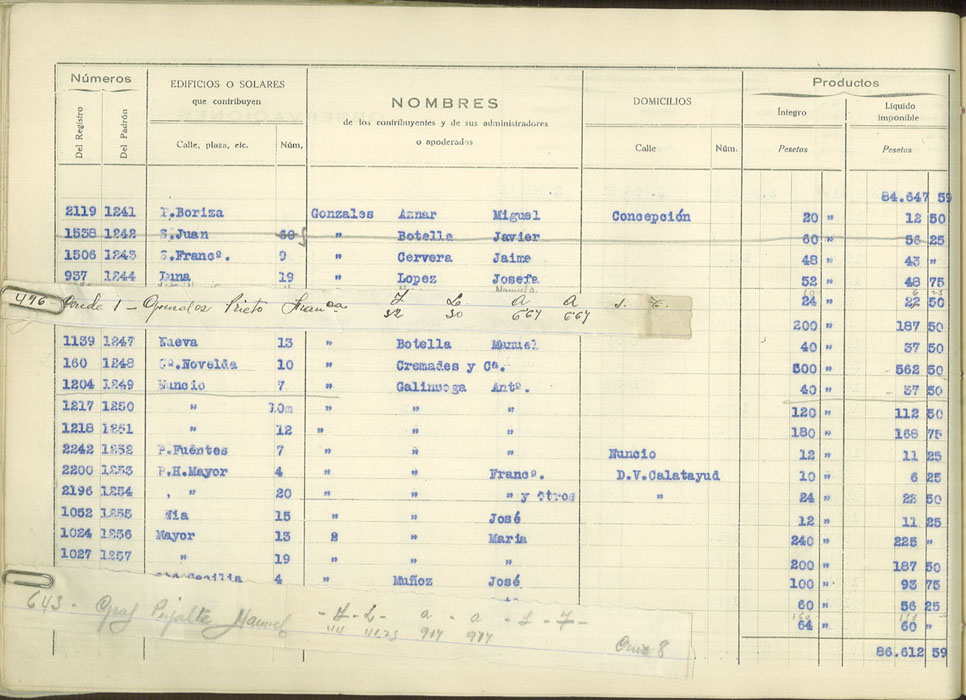 Números
EDIFICIOS O SOLARES
que contribuyen
NOMBRES
de los contribuyentes y de sus administradores
o apoderados
DOMICILIOS
Productos
Íntegro
Líquido
imponible
Del Registro
Del Padrón
Calle, plaza, etc.
Núm.
Calle
Núm.
Pesetas
Pesetas
84.647 59
2119 1241 P.Boriza Gonzales Aznar Miguel Concepción 20 " 12 50
1538 1242 S.Juan 60 " Botella Javier 60 " 56 25
1506 1243 S.Francº. 9 " Cervera Jaime 48 " 43 "
937 1244 Luna 19 " Lopez Josefa 52 " 48 75
24 " 22 50
200 " 187 50
1139 1247 Nueva 13 " Botella Manuel 40 " 37 50
160 1248 Cª.Novelda 10 " Cremades y Cª. 600 " 562 50
1204 1249 Nuncio 7 " Galinsoga Antº. 40 " 37 50
1217 1250 " 10m " " " 120 " 112 50
1218 1251 " 12 " " " 180 " 168 75
2242 1252 P.Fuentes 7 " " " Nuncio 12 " 11 25
2200 1253 P.H.Mayor 4 " " Francº. D.V.Calatayud 10 " 6 25
2196 1254 " 20 " " " y otros " 24 " 22 50
1052 1255 15 " " José 12 " 11 25
1024 1256 Mayor 13 " María 240 " 225 "
1027 1257 " 19 " " " 200 " 187 50
4 " Muñoz José 100 " 93 75
60 " 56 25
643 - Manuel - 64 " 60 "
86.612 59